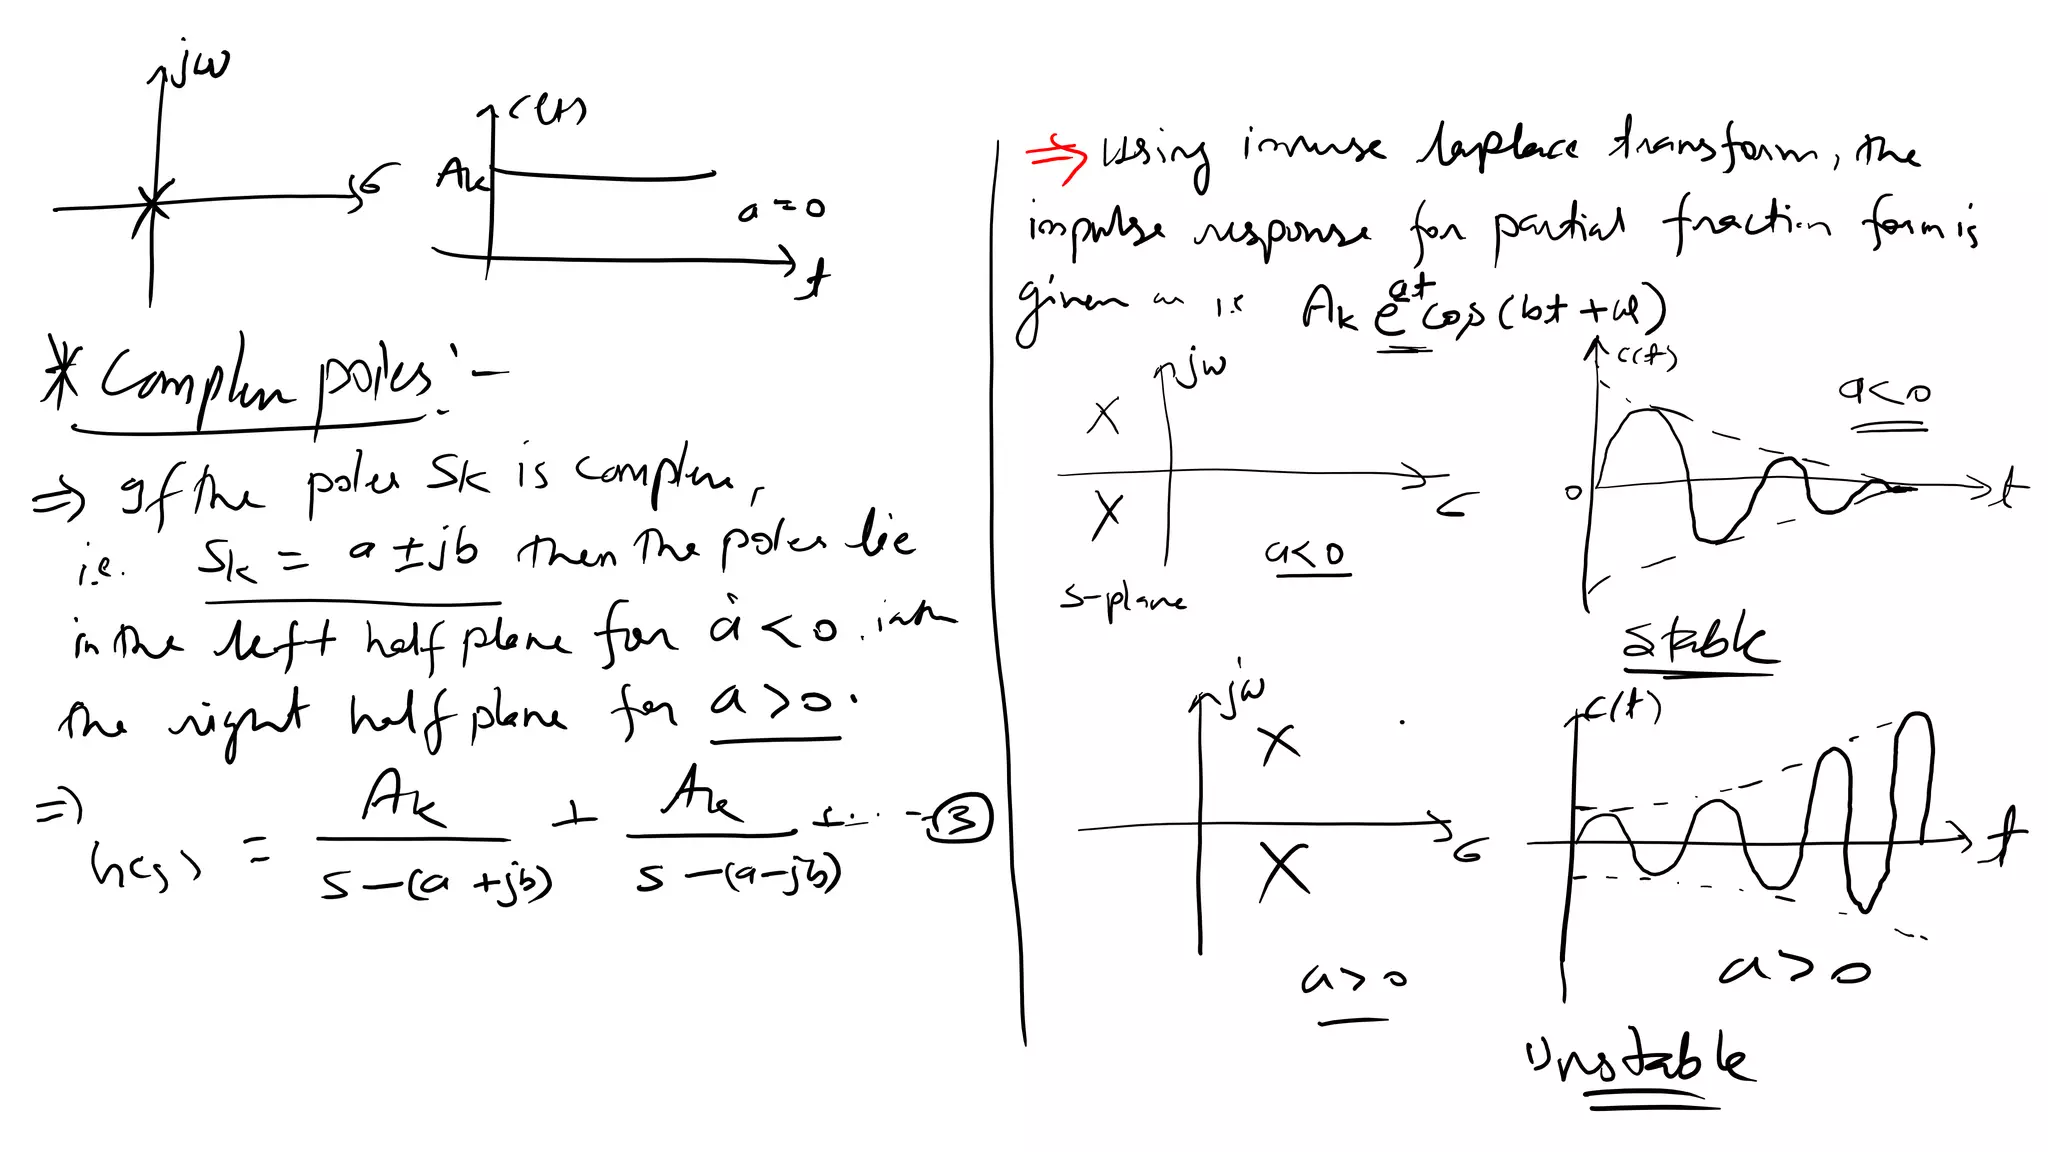 jω
σ
c(t)
Ak
a=0
t
* Complex poles :-
⇒ If the poles Sk is complex,
i.e. Sk = a ± jb then the poles lie
in the left half plane for a < 0.
the right half plane for a > 0.
⇒ h(s) = Ak / s-(a+jb) + Ak / s-(a-jb) + ... - ③
⇒ Using inverse laplace transform, the
impulse response for partial fraction form is
given as i.e Ak e^at cos(bt + φ)
jω
σ
a<0
s-plane
c(t)
a<0
0
t
Stable
jω
σ
a>0
c(t)
t
a>0
Unstable